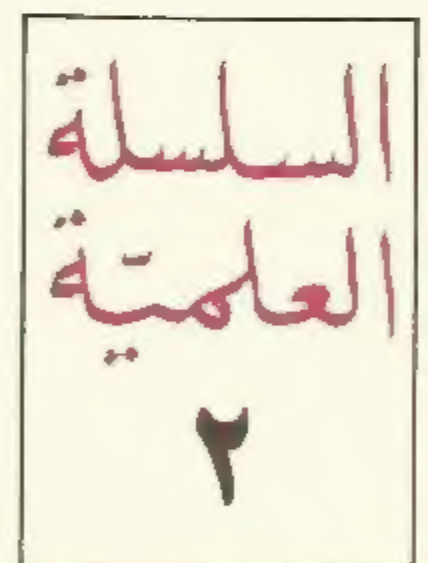 السلسلة
العلميّة
٢